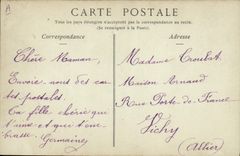 A
CARTE POSTALE
Tous les pays étrangers n'acceptent pas la correspondance au recto.
(Se renseigner à la Poste)
Correspondance
Adresse
Chère Maman,
Envoie nous des car-
tes postales.
Ta fille chérie qui
t'aime et que t'em-
brasse. Germaine
Madame Croubat
Maison Arnaud
Rue Porte de France
Vichy
(Allier)